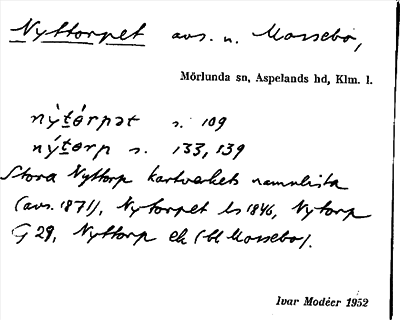 Nyttorpet avs. u. Mossebo,
Mörlunda sn, Aspelands hd, Klm. l.
nỳtórpət s. 109
nýtòrp s. 133, 139
Stora Nyttorp kartverkets namnlista
(avs. 1871), Nytorpet ls 1846, Nytorp
G 29, Nyttorp ek (bl Mossebo).
Ivar Modéer 1952